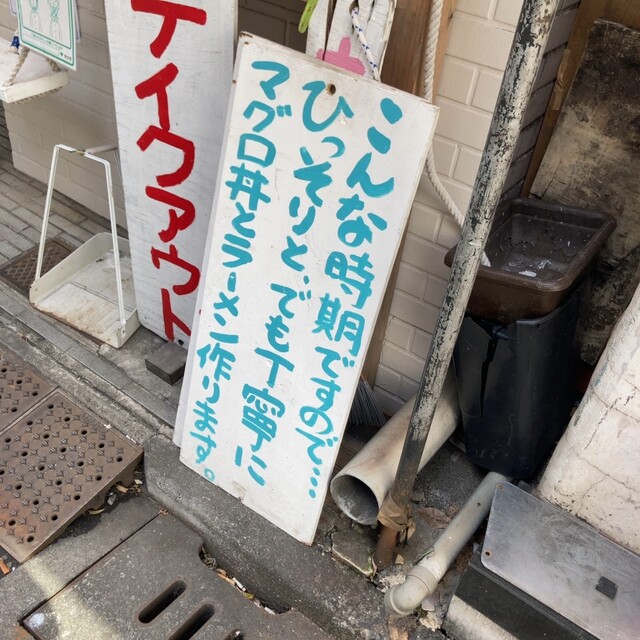 テイクアウト
こんな時期ですので…
ひっそりと、でも丁寧に
マグロ丼とラーメン作ります。